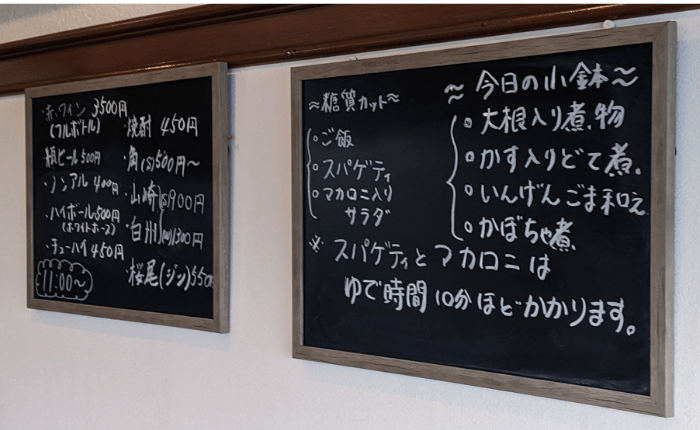 ・赤ワイン 3500円
(フルボトル)
瓶ビール 500円
・ノンアル 400円
・ハイボール 500円
(ホワイトホース)
・チューハイ 450円
11:00〜
・焼酎 450円
・角(S)500円〜
・山崎(S)900円
・白州(W)1300円
・桜尾(ジン)550
〜糖質カット〜
○ご飯
○スパゲティ
○マカロニ入り
サラダ
〜今日の小鉢〜
○大根入り煮物
○かす入りどて煮
○いんげんごま和え
○かぼちゃ煮
※スパゲティとマカロニは
ゆで時間10分ほどかかります。